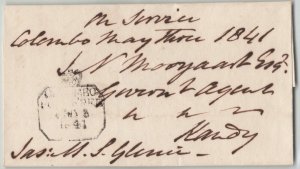 On Service
Colombo May three 1841
J. N. Mooyaart Esqr.
Governt Agent
Kandy
COLOMBO
MAY 3
1841